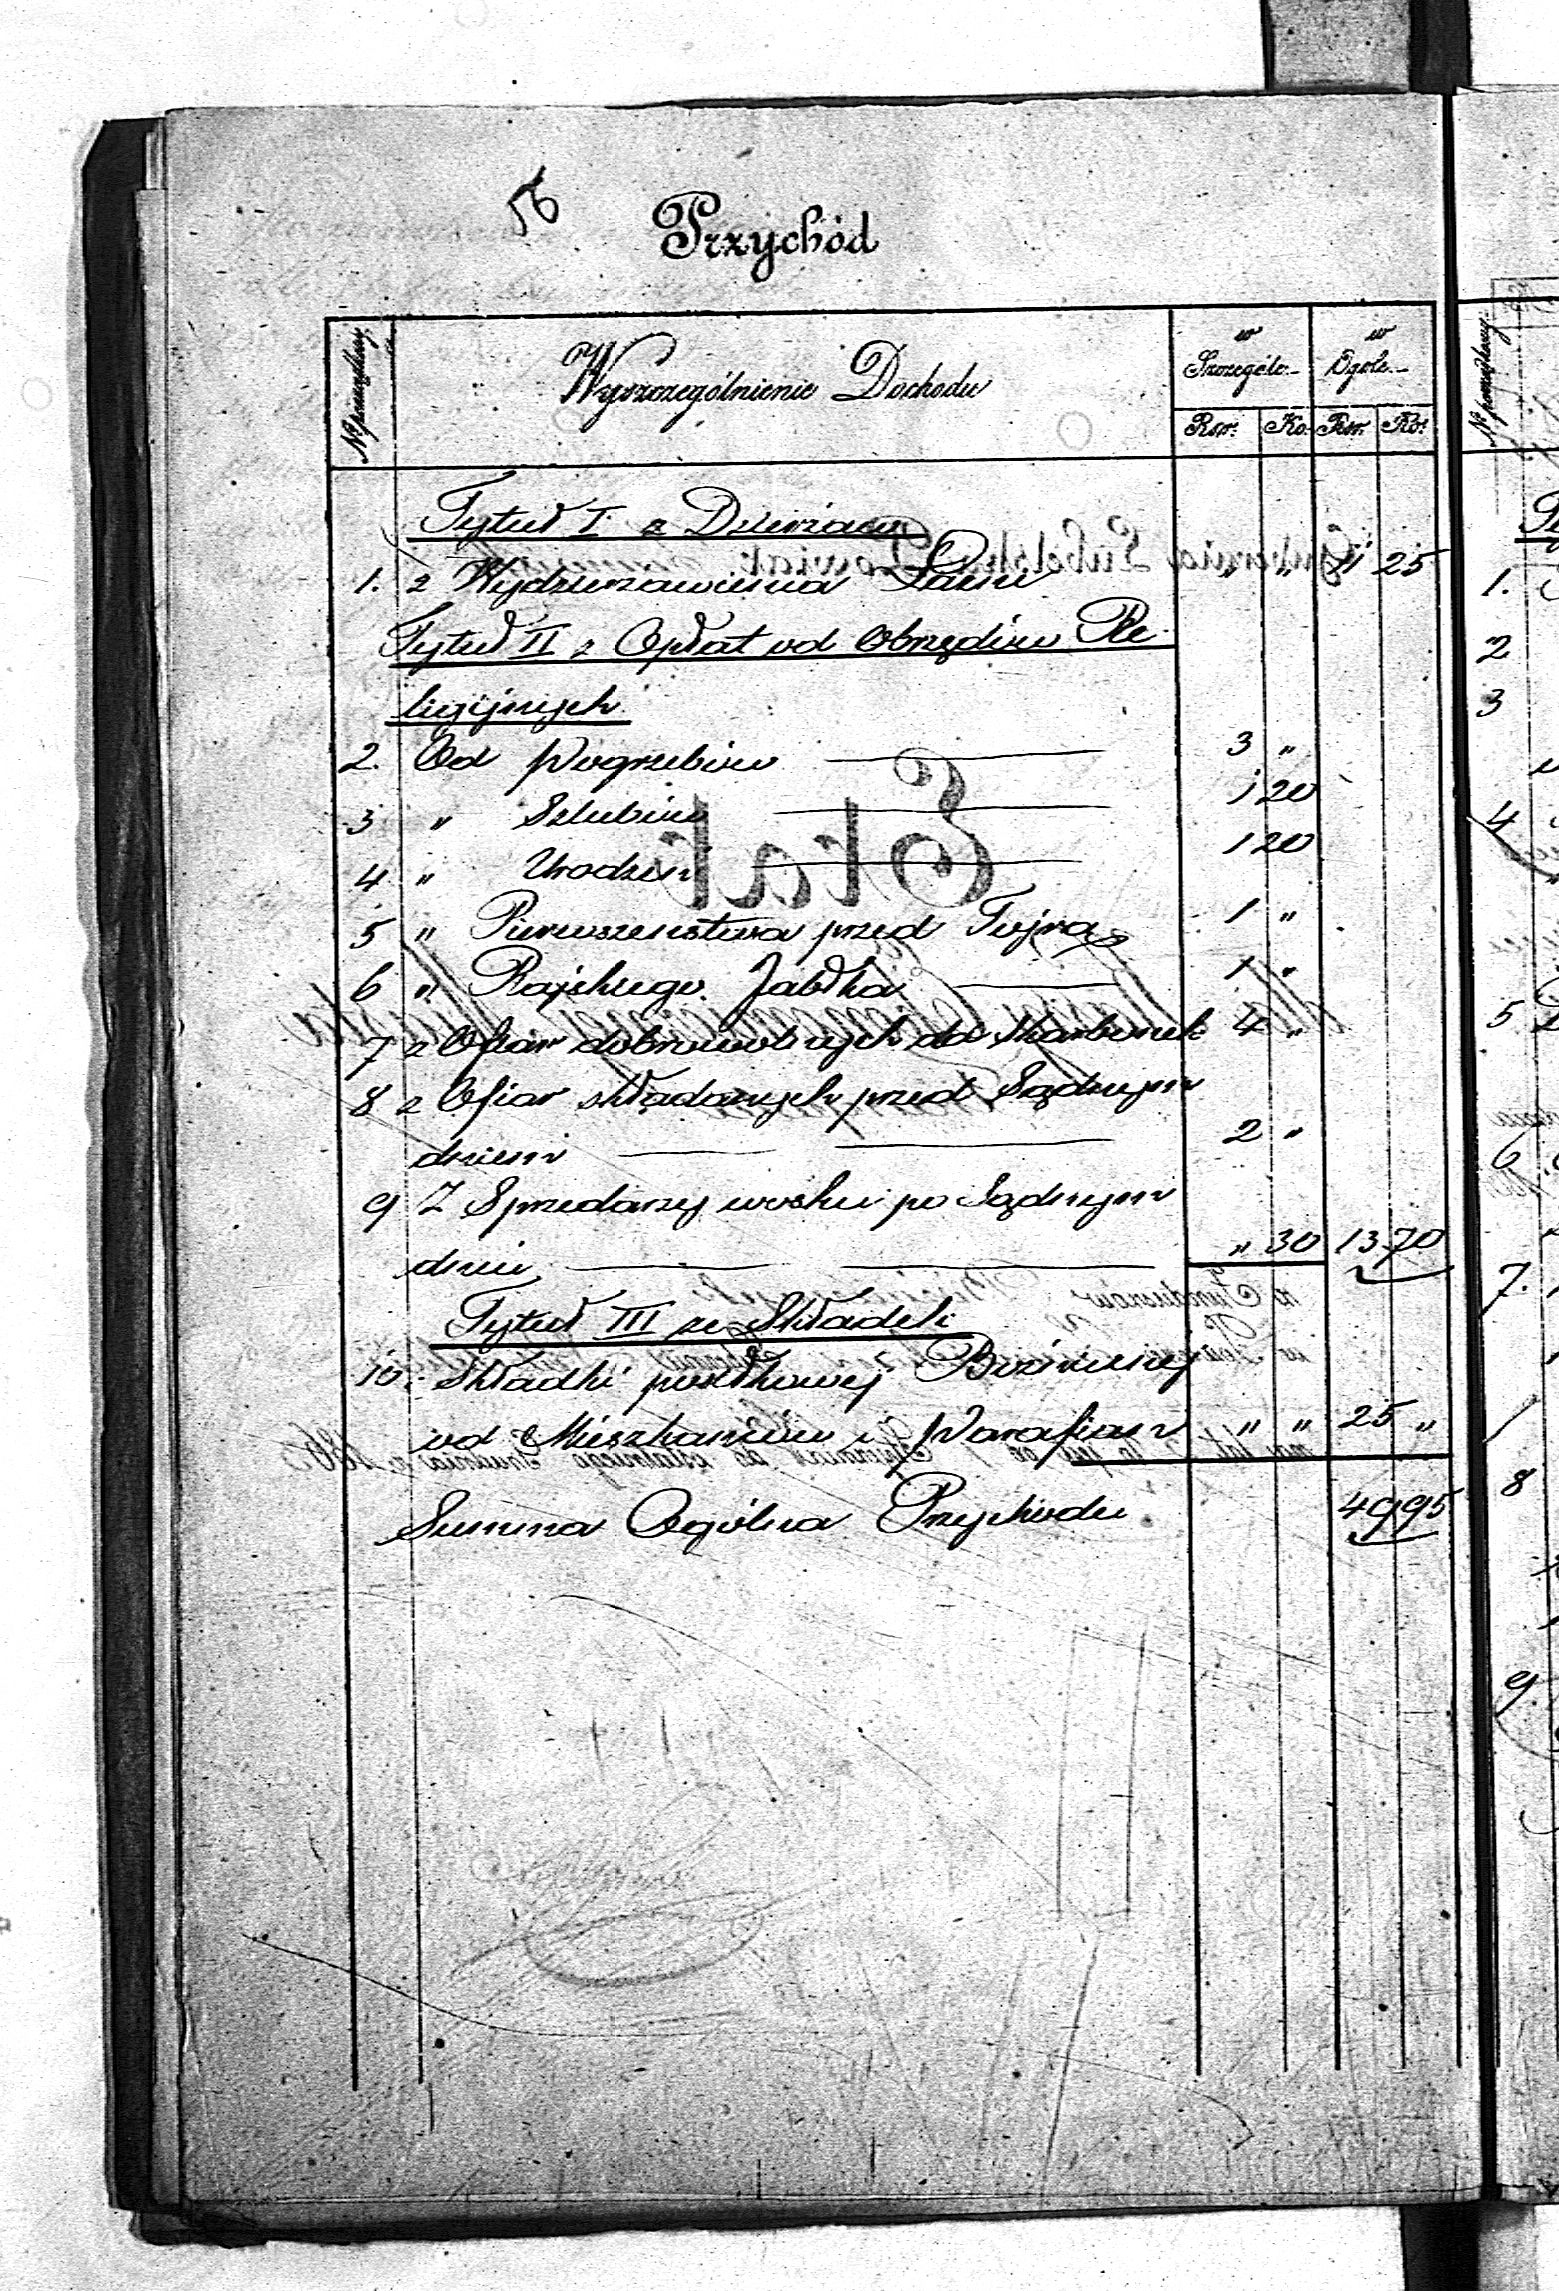 56
Przychód
Nº porządkowy
Wyszczególnienie Dochodu
w Szczególe
w Ogóle
Rsr. Ko. Rsr. Ko.
Tytuł I z Dzierżaw
1. z Wydzierżawienia Łaźni " " 11 25
Tytuł II z Opłat od Obrzędów Re-
ligijnych
2. Od Pogrzebów 3 "
3 " Szlubów 1 20
4 " Urodzin 1 20
5 " Pierwszenstwa przed Tojrą 1 "
6 " Rajskiego Jabłka 1 "
7 z Ofiar dobrowolnych do Skarbonek 4 "
8 z Ofiar składanych przed Sądnym
dniem 2 "
9 Z Sprzedarzy wosku po Sądnym
dniu " 30 13 70
Tytuł III ze Składek
10. Składki posiłkowej Bożniczej
od Mieszkańców i Parafian " " 25 "
Summa Ogólna Przychodu 49 95